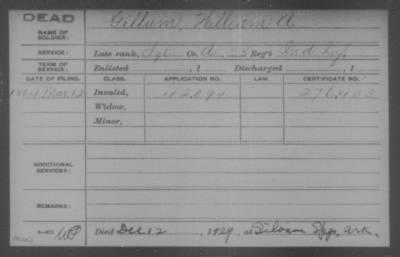 DEAD
NAME OF SOLDIER: Gillum, William A.
SERVICE: Late rank, Co. A, Reg't Ind Inf.
TERM OF SERVICE: Enlisted , 1 Discharged , 1
DATE OF FILING. CLASS. APPLICATION NO. LAW. CERTIFICATE NO.
1864 Mar. 12 Invalid, 42,094 276,403
Widow,
Minor,
ADDITIONAL SERVICES:
REMARKS:
Died Dec 12, 1929, at Siloam Spgs. Ark.